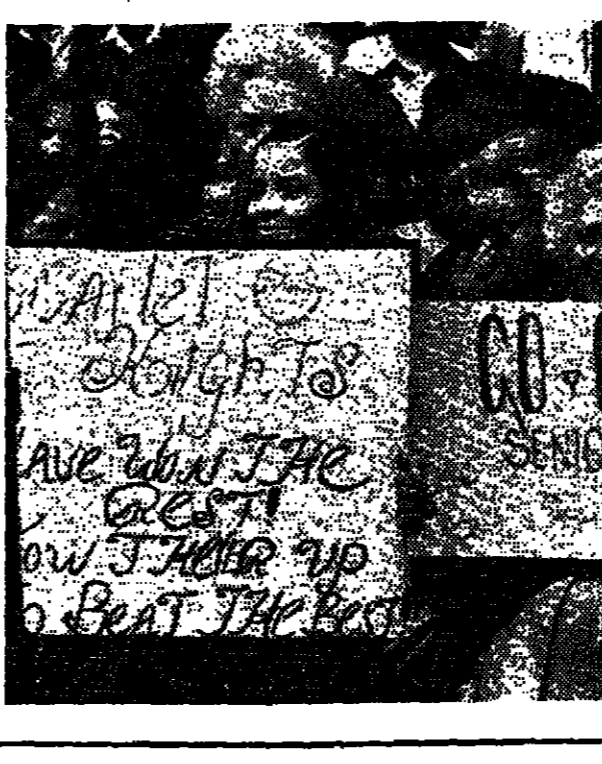 KNIGHTS
AVE WON THE
REST!
OW THEIR UP
O BEAT THE BEST
GO-
SENIO